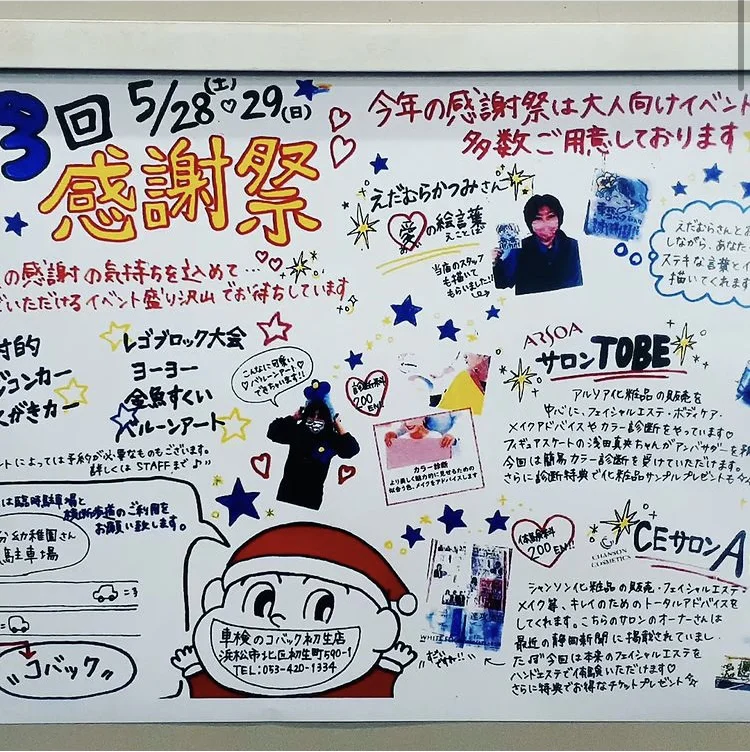 3回 5/28(土)♡29(日)
感謝祭
の感謝の気持ちを込めて…
いただけるイベント盛り沢山でお待ちしています
的
コンカー
がきカー
レゴブロック大会
ヨーヨー
金魚すくい
バルーンアート
ントによっては予約が必要なものもございます。
詳しくはSTAFFまで♪
は臨時駐車場と
横断歩道のご利用を
お願い致します。
幼稚園さん
駐車場
コバック
車検のコバック初生店
浜松市北区初生町590-1
TEL:053-420-1334
今年の感謝祭は大人向けイベント
多数ご用意しております
えだむらかつみさん
愛の絵言葉
えことば
当店のスタッフ
も描いて
もらいました!!
えだむらさんとお
しながら、あなた
ステキな言葉と
描いてくれます
こんなに可愛い
♡バルーンアート♡
できちゃいます!!
診断無料
200EN!!
カラー診断
より美しく魅力的に見せるための
似合う色、メイクをアドバイスします
ARSOA
サロンTOBE
アルソア化粧品の販売を
中心に、フェイシャルエステ・ボディケア・
メイクアドバイスやカラー診断をやっています♡
フィギュアスケートの浅田真央ちゃんがアンバサダーを
今回は簡易カラー診断を受けていただけます。
さらに診断特典で化粧品サンプルプレゼントも☆
体験無料
200EN!!
CHANSON
COSMETICS
CEサロンA
シャンソン化粧品の販売・フェイシャルエステ・
メイク等、キレイのためのトータルアドバイスを
してくれます。こちらのサロンのオーナーさんは
最近の静岡新聞に掲載されていまし
た!! 今回は本来のフェイシャルエステを
ハンドエステで体験いただけます♡
さらに特典でお得なチケットプレゼント☆